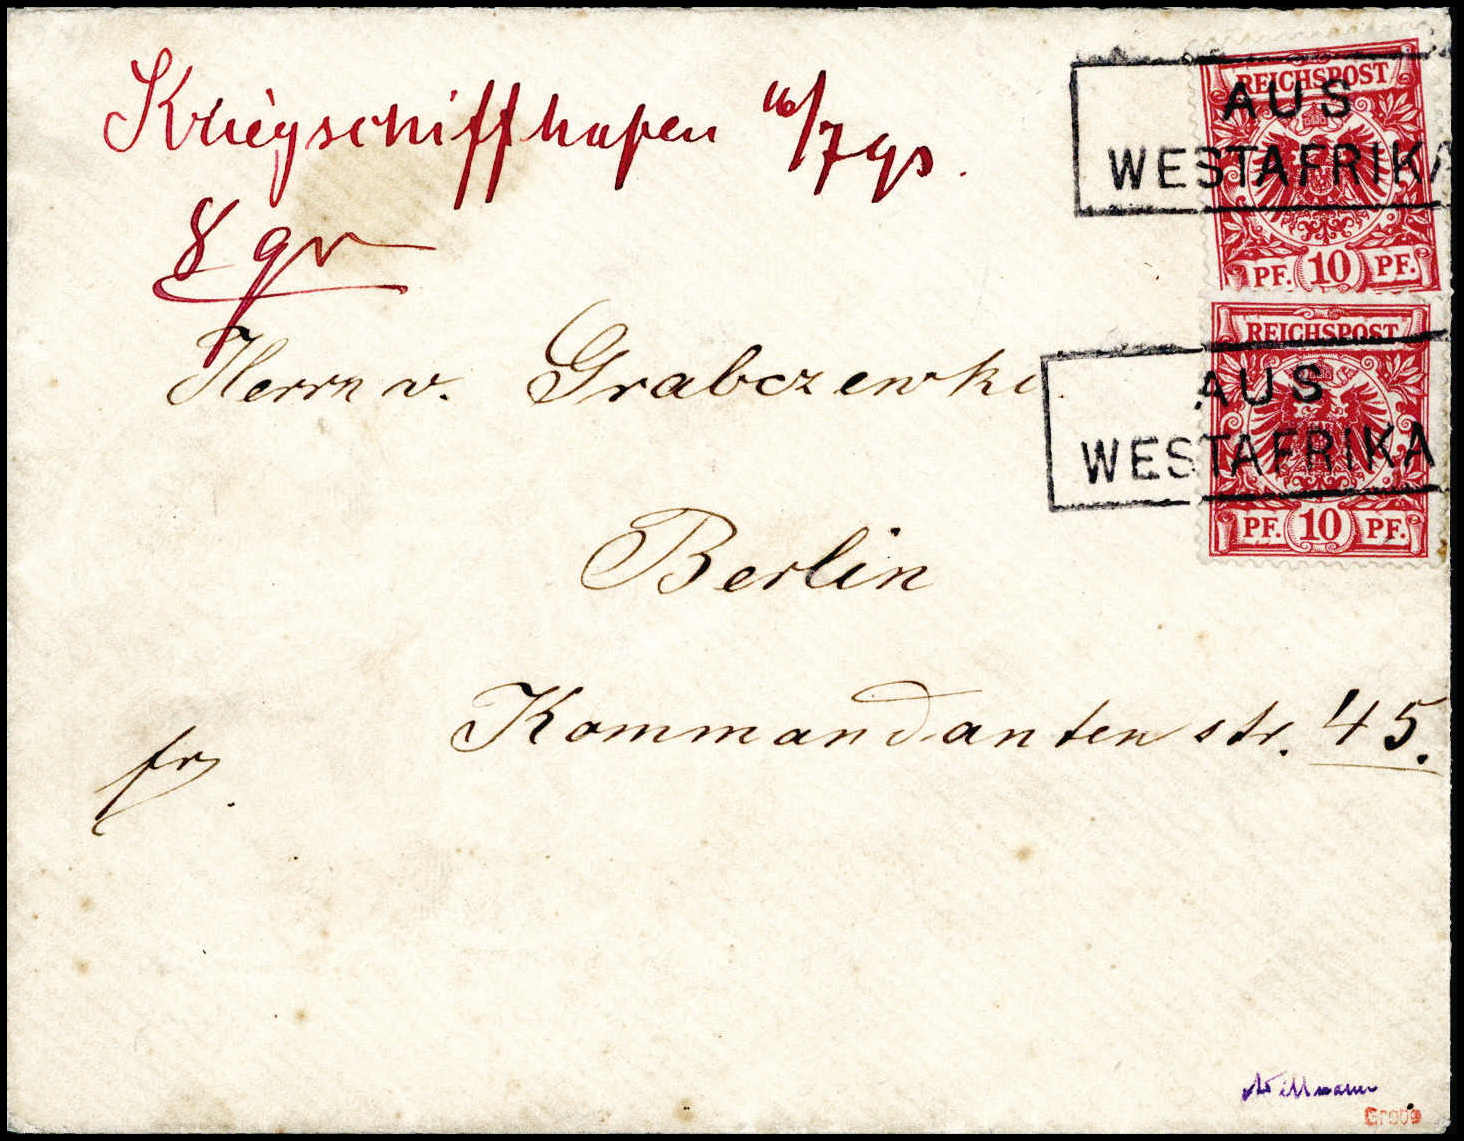 Kriegschiffhafen 16/7 98.
8 gr
REICHSPOST
AUS
WESTAFRIKA
PF. 10 PF.
REICHSPOST
AUS
WESTAFRIKA
PF. 10 PF.
Herrn v. Grabczewski.
Berlin
Kommandantenstr. 45.
fr.
Willmann
Grobe